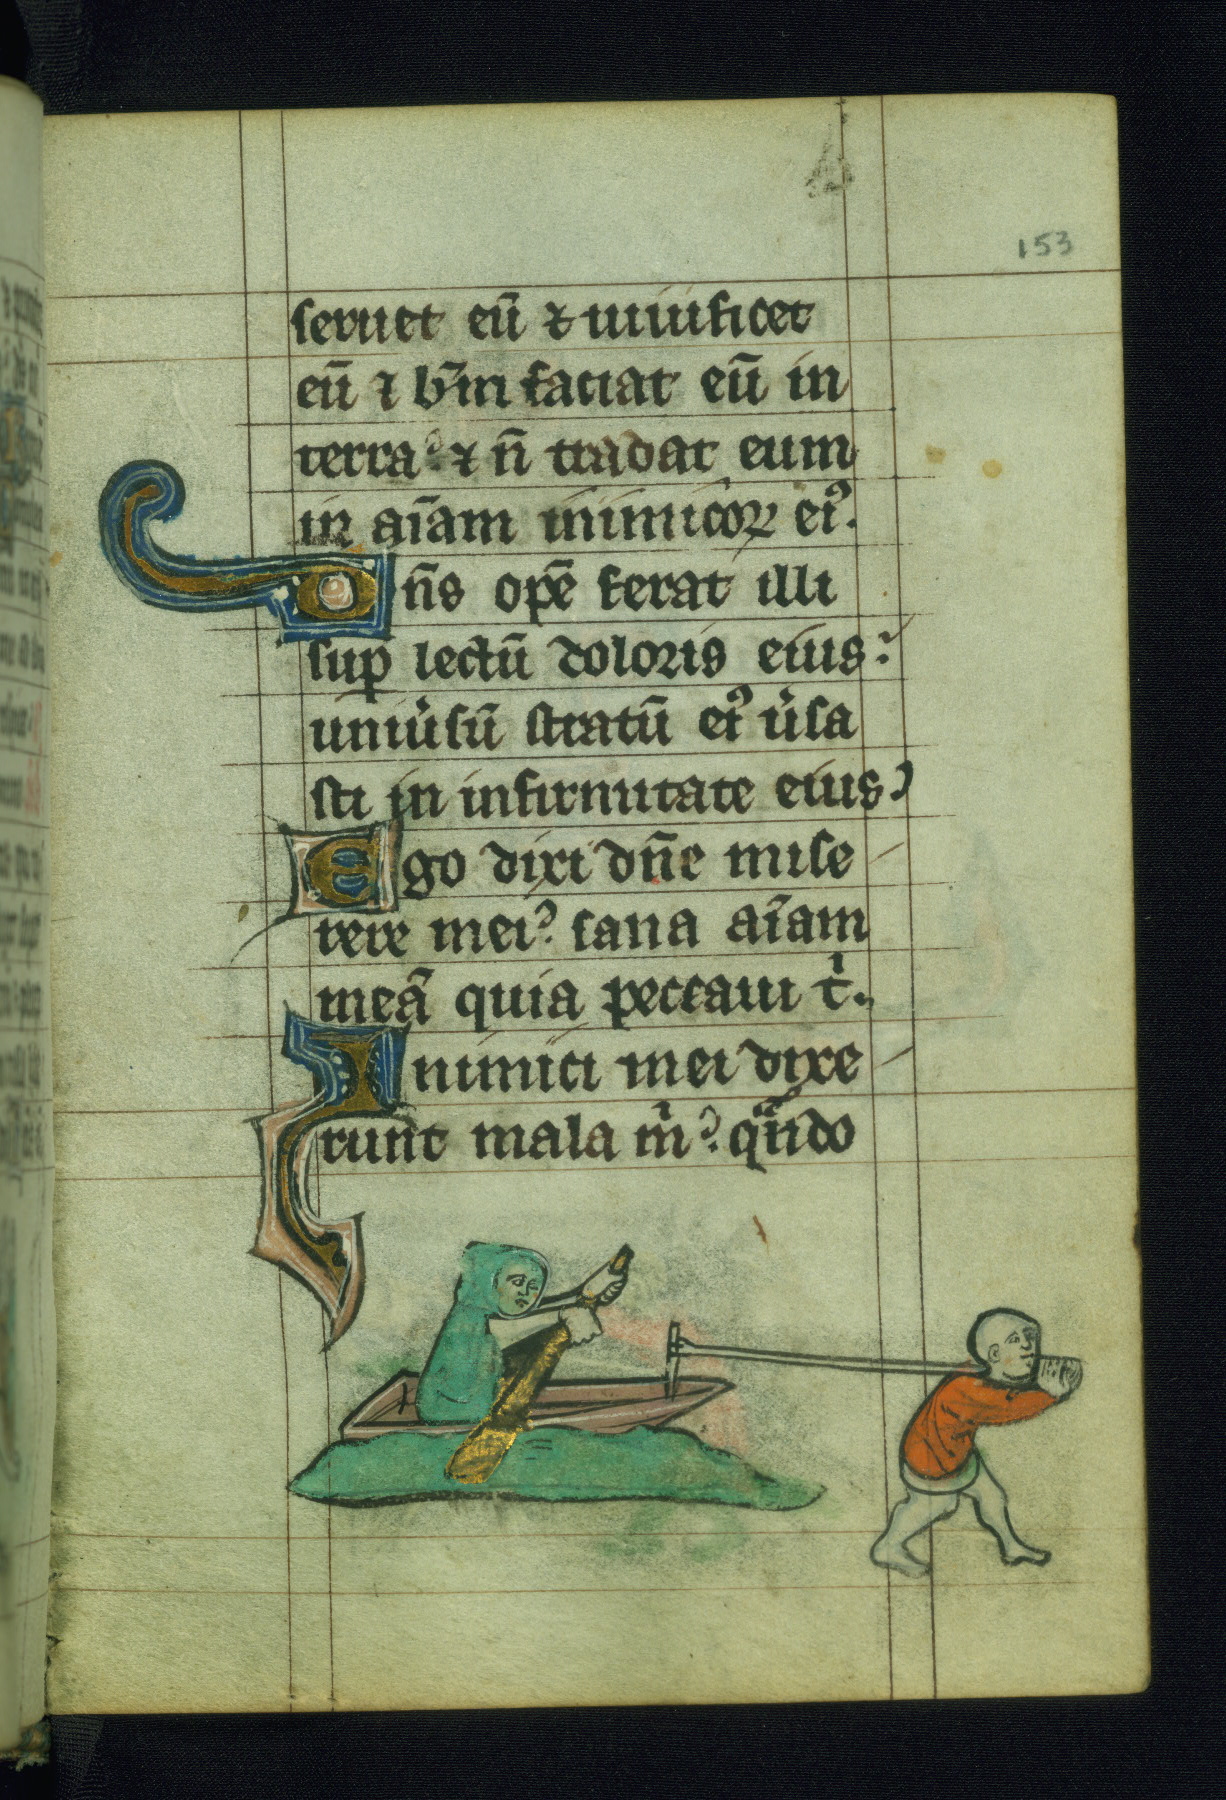 153
seruet eū ⁊ uiuificet
eū ⁊ b̄m faciat eū in
terra? ⁊ n̄ tradat eum
in aīam inimicoꝝ eiꝰ.
Dn̄s opē ferat illi
suꝑ lectū doloris eius?
uniu͛sū stratū eiꝰ u͛sa
sti in infirmitate eius?
Ego dixi dn̄e mise
rere mei? sana aīam
meā quia peccaui tͥ.
Inimici mei dixe
runt mala mͥ? qn̄do